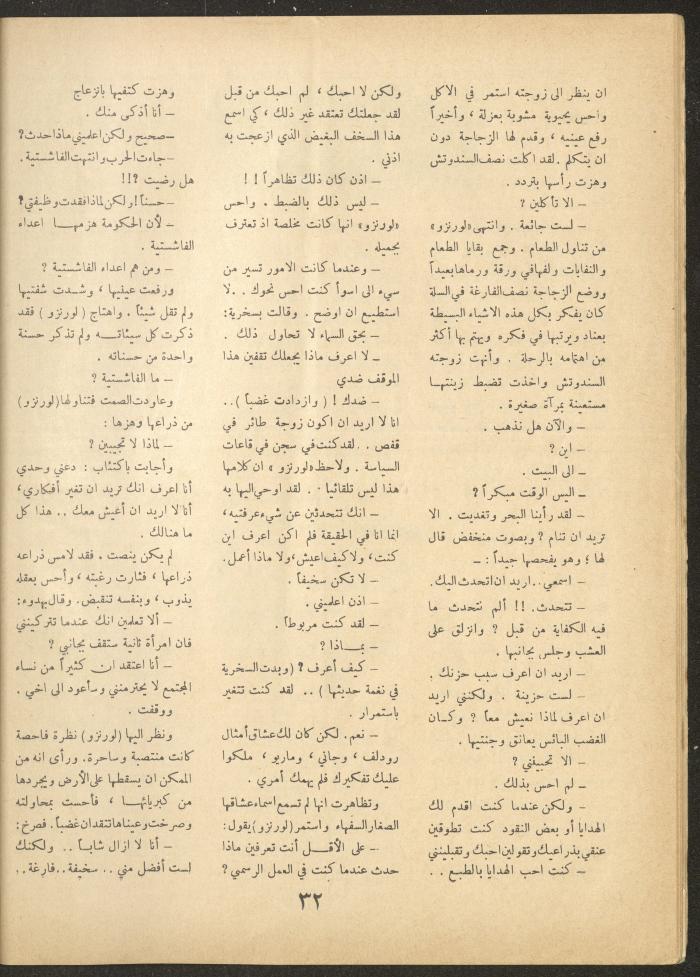 ان ينظر الى زوجته استمر في الاكل
واحس بحيوية مشوبة بعزلة ، وأخيراً
رفع عينيه ، وقدم لها الزجاجة دون
ان يتكلم . لقد اكلت نصف السندوتش
وهزت رأسها بتردد .
ــ الا تأكلين ?
ــ لست جائعة . وانتهى «لورنزو»
من تناول الطعام . وجمع بقايا الطعام
والنفايات ولفها في ورقة ورماها بعيداً
ووضع الزجاجة نصف الفارغة في السلة
كان يفكر بكل هذه الاشياء البسيطة
بعناد ويرتبها في فكره ويهتم بها أكثر
من اهتمامه بالرحلة . وأنهت زوجته
السندوتش واخذت تضبط زينتها
مستعينة بمرآة صغيرة .
ــ والآن هل نذهب .
ــ اين ?
ــ الى البيت .
ــ اليس الوقت مبكراً ?
ــ لقد رأينا البحر وتغديت . الا
تريد ان تنام ? وبصوت منخفض قال
لها ؛ وهو يفحصها جيداً : ــ
ــ اسمعي .. اريد ان اتحدث اليك.
ــ نتحدث . !! ألم نتحدث ما
فيه الكفاية من قبل ? وانزلق على
العشب وجلس بجانبها .
ــ اريد ان اعرف سبب حزنك .
ــ لست حزينة . ولكنني اريد
ان اعرف لماذا نعيش معاً ? وكان
الغضب البائس يعانق وجنتيها .
ــ الا تحبيني ?
ــ لم احس بذلك .
ــ ولكن عندما كنت اقدم لك
الهدايا أو بعض النقود كنت تطوقين
عنقي بذراعيك وتقولين احبك وتقبلينني
ــ كنت احب الهدايا بالطبع . .
ولكن لا احبك ، لم احبك من قبل
لقد جعلتك تعتقد غير ذلك ، كي اسمع
هذا السخف البغيض الذي ازعجت به
اذني .
ــ اذن كان ذلك تظاهراً ! !
ــ ليس ذلك بالضبط . واحس
«لورنزو» انها كانت مخلصة اذ تعترف
بجميله .
ــ وعندما كانت الامور تسير من
سيء الى اسوأ كنت احس نحوك . .لا
استطيع ان اوضح . وقالت بسخرية:
ــ بحق السماء لا تحاول ذلك .
ــ لا اعرف ماذا يجعلك تقفين هذا
الموقف ضدي
ــ ضدك ! ( وازدادت غضباً )..
انا لا اريد ان اكون زوجة طائر في
قفص . . لقد كنت في سجن في قاعات
السياسة . ولاحظ «لورنزو » ان كلامها
هذا ليس تلقائيا . . لقد اوحي اليها به
ــ انك تتحدثين عن شيء عرفتيه،
انما انا في الحقيقة فلم اكن اعرف اين
كنت، ولا كيف اعيش، ولا ماذا أعمل.
ــ لا تكن سخيفاً .
ــ اذن اعلميني .
ــ لقد كنت مربوطاً .
ــ بماذا ?
ــ كيف أعرف ? (وبدت السخرية
في نغمة حديثها ) .. لقد كنت تتغير
باستمرار .
ــ نعم. لكن كان لك عشاق أمثال
رودلف ، وجاني ، وماريو ، ملكوا
عليك تفكيرك فلم يهمك أمري .
وتظاهرت انها لم تسمع اسماء عشاقها
الصغار السفهاء واستمر (لورنزو) يقول:
ــ على الأقل أنت تعرفين ماذا
حدث عندما كنت في العمل الرسمي?
وهزت كتفيها بانزعاج
ــ أنا أذكى منك .
ــ صحيح ولكن اعلميني ماذا حدث?
ــ جاءت الحرب وانتهت الفاشستية .
هل رضيت ?!!
ــ حسناً! ولكن لماذا فقدت وظيفتي?
ــ لأن الحكومة هزمها اعداء
الفاشستية .
ــ ومن هم اعداء الفاشستية ?
ورفعت عينيها ، وشدت شفتيها
ولم تقل شيئاً . واهتاج ( لورنزو ) فقد
ذكرت كل سيئاته ولم تذكر حسنة
واحدة من حسناته .
ــ ما الفاشستية ?
وعاودت الصمت فتناولها (لورنزو)
من ذراعها وهزها :
ــ لماذا لا تجيبين ?
وأجابت باكتئاب : دعني وحدي
أنا اعرف انك تريد ان تغير أفكاري،
أنا لا اريد ان أعيش معك .. هذا كل
ما هنالك .
لم يكن ينصت . فقد لامس ذراعه
ذراعها ، فثارت رغبته ، وأحس بعقله
يذوب ، وبنفسه تنقبض. وقال بهدوء:
ــ ألا تعلمين انك عندما تتركينني
فان امرأة ثانية ستقف بجانبي ?
ــ أنا اعتقد ان كثيراً من نساء
المجتمع لا يحترمنني وسأعود الى اخي .
ووقفت .
ونظر اليها (لورنزو) نظرة فاحصة
كانت منتصبة وساحرة. ورأى انه من
الممكن ان يسقطها على الأرض ويجردها
من كبريائها ، فأحست بمحاولته
وصرخت وعيناها تتقدان غضباً. فصرخ:
ــ أنا لا ازال شاباً .. ولكنك
لست أفضل مني .. سخيفة .. فارغة ..
٣٢